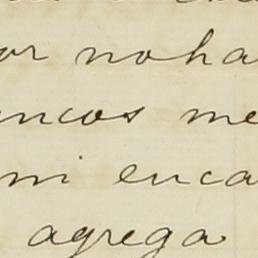 or noha
ncos me
mi enca
agrega